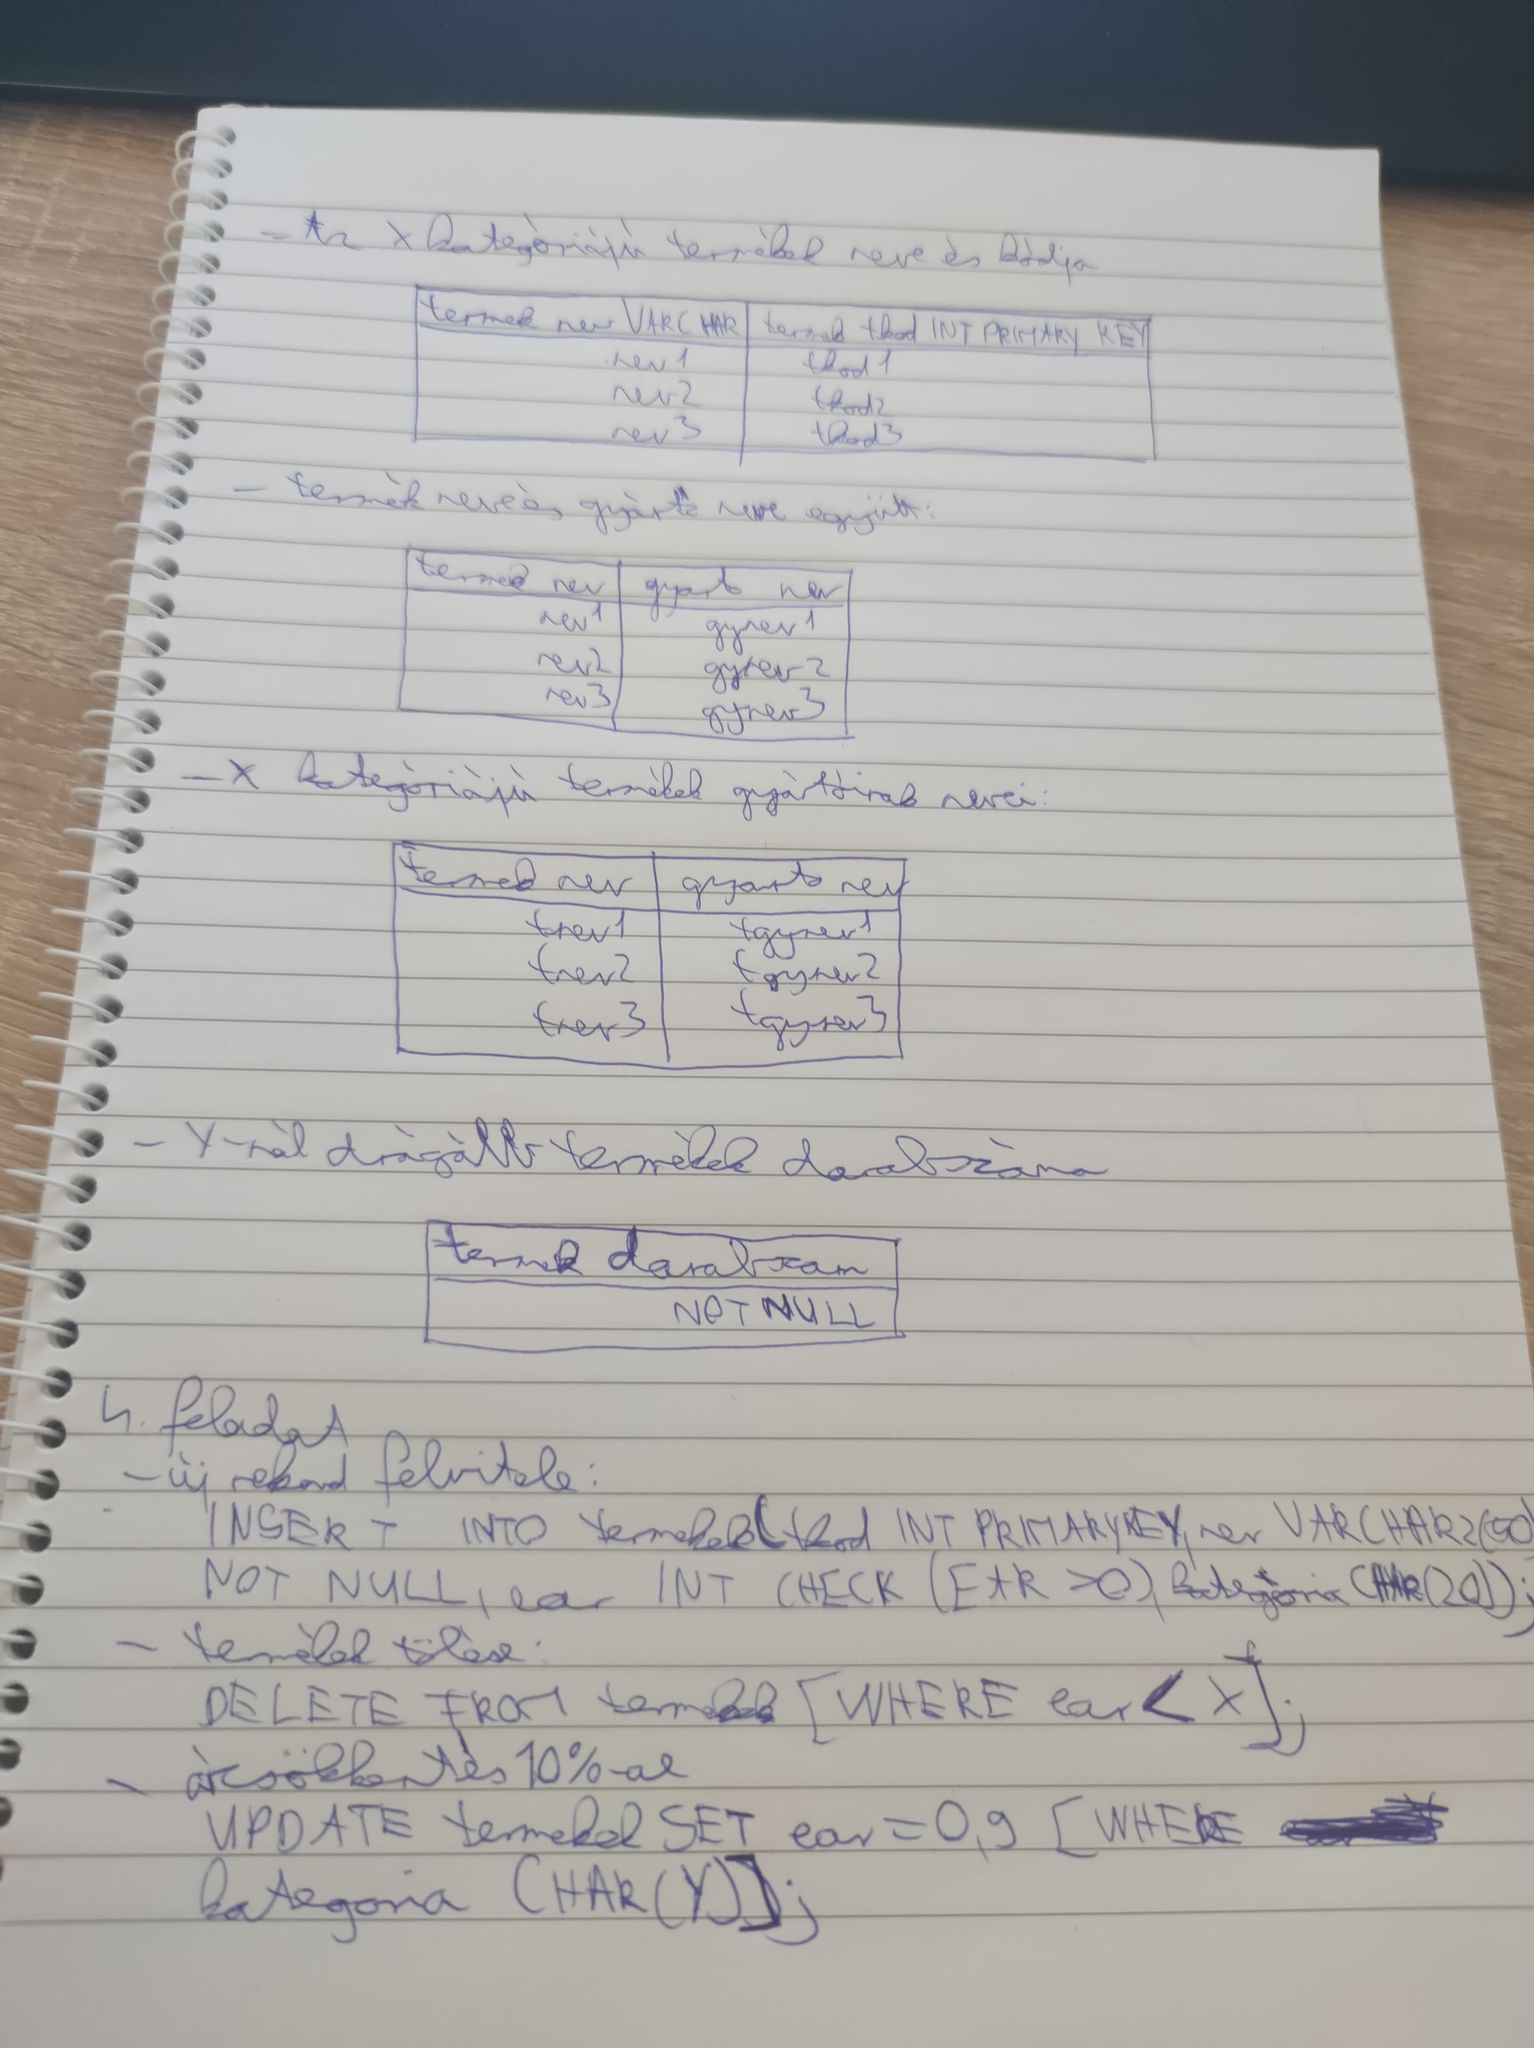 - Az X kategóriájú termékek neve és kódja
termek nev VARCHAR termek tkod INT PRIMARY KEY
nev1 tkod1
nev2 tkod2
nev3 tkod3
- termék neve és gyártó neve együtt:
termek nev gyarto nev
nev1 gynev1
nev2 gynev2
nev3 gynev3
- X kategóriájú termékek gyártóinak nevei:
termek nev gyarto nev
tnev1 tgynev1
tnev2 tgynev2
tnev3 tgynev3
- Y-nál drágább termékek darabszáma
termek darabszam
NOT NULL
4. feladat
- új rekord felvitele:
INSERT INTO termekek(tkod INT PRIMARYKEY, nev VARCHAR2(50)
NOT NULL, ear INT CHECK (EAR >0), kategória CHAR(20));
- termékek törlése:
DELETE FROM termekek [WHERE ear < X];
- árcsökkentés 10%-al
UPDATE termekek SET ear=0,9 [WHERE
kategoria CHAR(Y)];